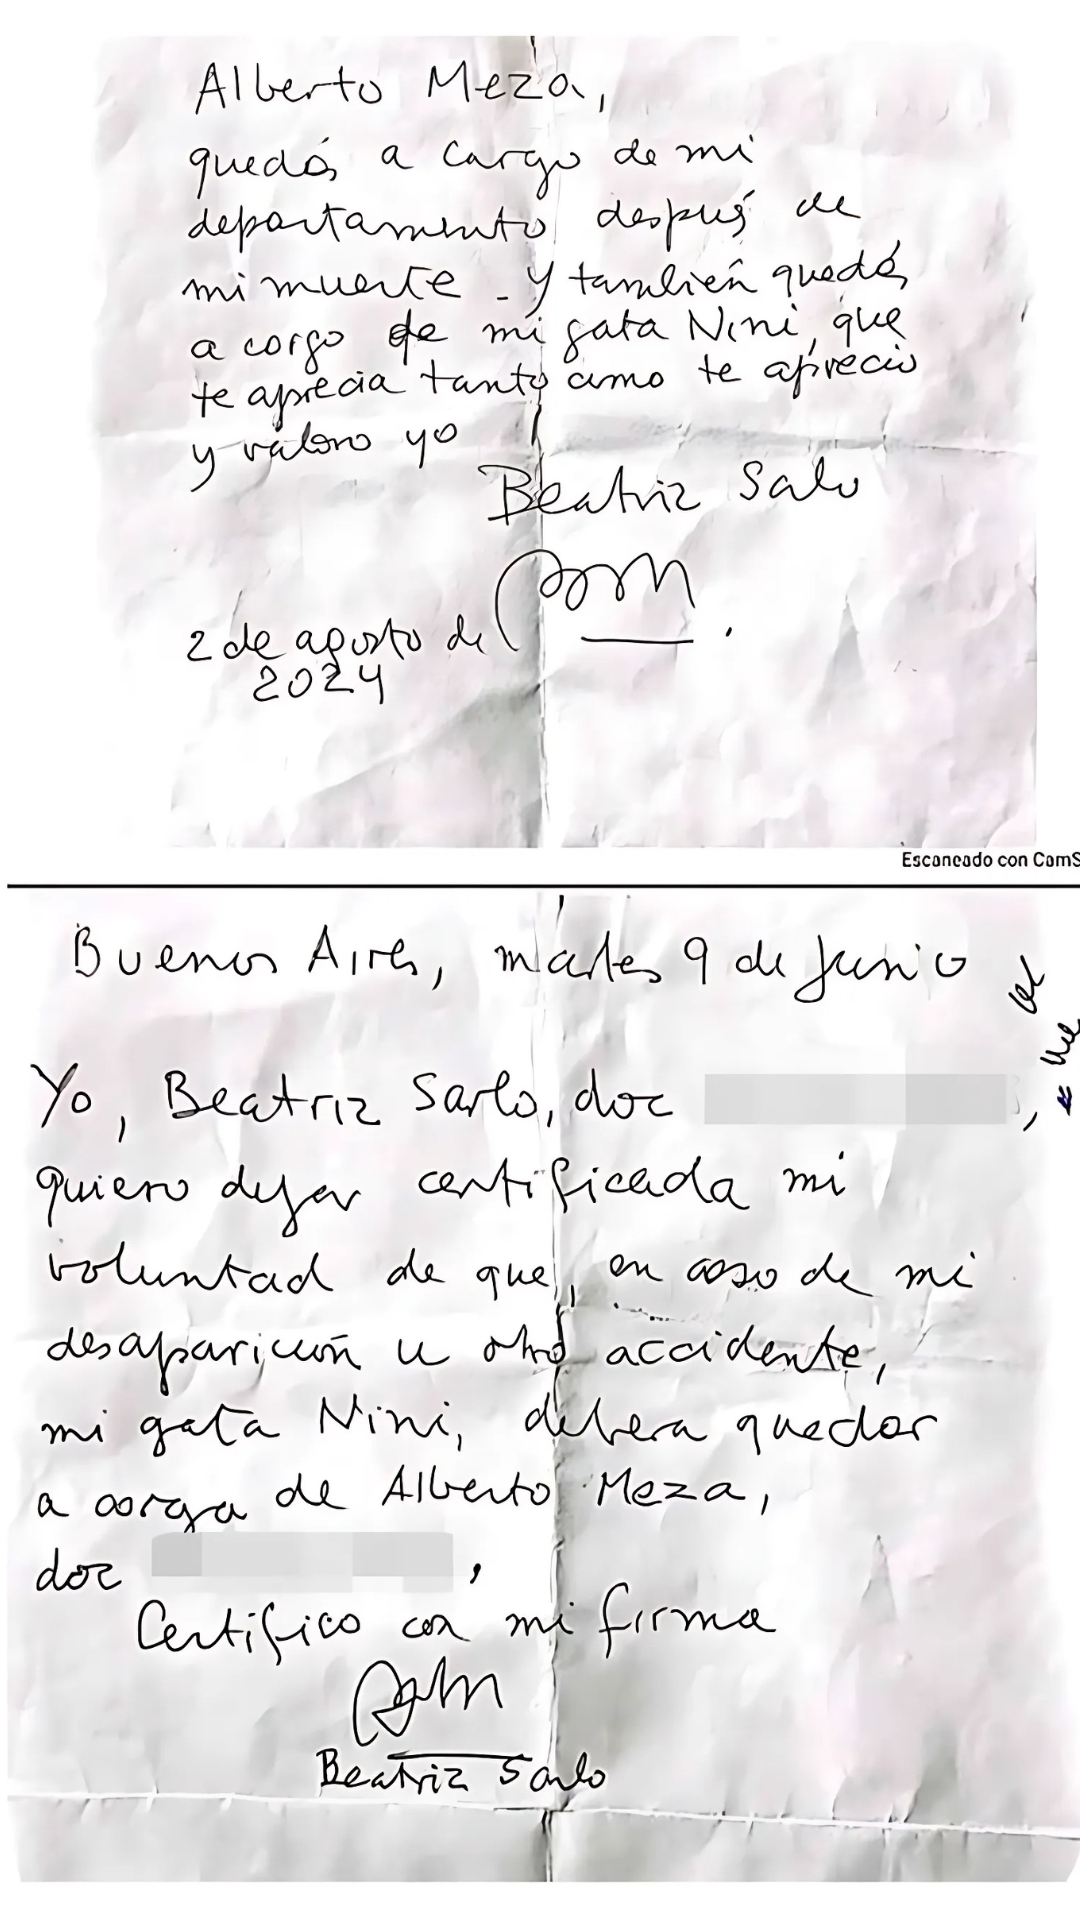 Alberto Meza,
quedás a cargo de mi
departamento después de
mi muerte - y también quedás
a cargo de mi gata Nini, que
te aprecia tanto como te aprecio
y valoro yo
Beatriz Sarlo
2 de agosto de
2024
Escaneado con CamS
Buenos Aires, martes 9 de junio
Yo, Beatriz Sarlo, doc
quiero dejar certificada mi
voluntad de que, en caso de mi
desaparición u otro accidente,
mi gata Nini, debera quedar
a cargo de Alberto Meza,
doc ,
Certifico con mi firma
Beatriz Sarlo